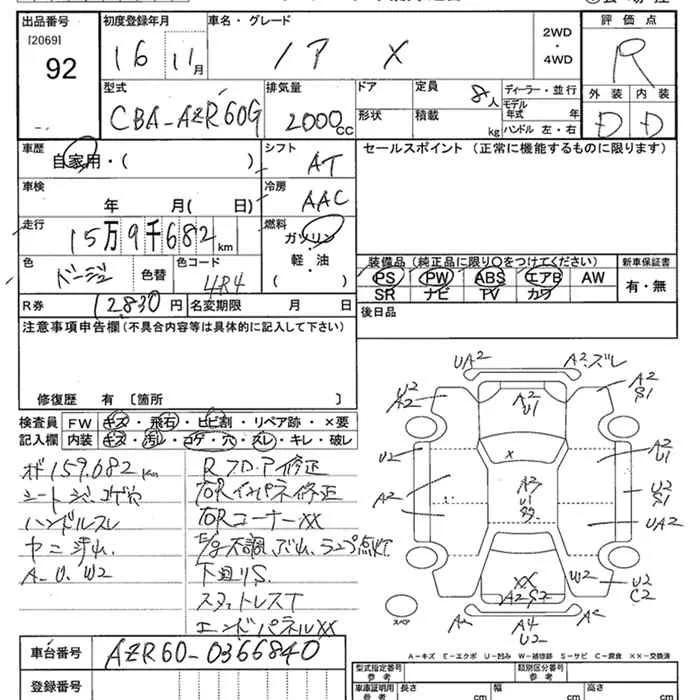 出品番号 初度登録年月 車名・グレード 2WD・4WD 評価点
[2069]
92 16 11月 ノア X R
型式 排気量 ドア 定員 8人 ディーラー・並行 外装 内装
CBA-AZR60G 2000cc 形状 積載 kg モデル年式 年 D D
ハンドル 左・右
車歴 シフト セールスポイント (正常に機能するものに限ります)
自家用・( ) AT
車検 冷房
年 月( 日) AAC
走行 燃料
15万9千682km ガソリン
軽・油
( )
色 色替 色コード 装備品 (純正品に限り○をつけてください) 新車保証書
ベージュ 4R4 PS PW ABS エアB AW 有・無
SR ナビ TV カワ
R券 12830円 名変期限 月 日 後日品
注意事項申告欄 (不具合内容等は具体的に記入して下さい)
修復歴 有 〔箇所 〕
検査員 FW キズ・飛石・ヒビ割・リペア跡・×要
記入欄 内装 キズ・汚レ・コゲ・穴・スレ・キレ・破レ
メーター159,682km
シート
ハンドルスレ
ヤニ汚れ
A.U.W2
RフロアF修正
右Rインパネ修正
右RコーナーXX
E/g不調 ランプ点灯
下回りS
スタットレスT
エンドパネルXX
UA2 A2.ズレ
U2 A2 A2 U1 A2 S1
U2 X A2 U1
A2 U2 S1
UA2
XX W2 U2 C2
A2S2
A2 A4 U2 A2
スペア
A-キズ E-エクボ U-凹み W-補修跡 S-サビ C-腐食 XX-交換済
車台番号 AZR60-0366840
登録番号
型式指定番号 参考 類別区分番号 参考
車庫証明用 参考 長さ cm 幅 cm 高さ cm